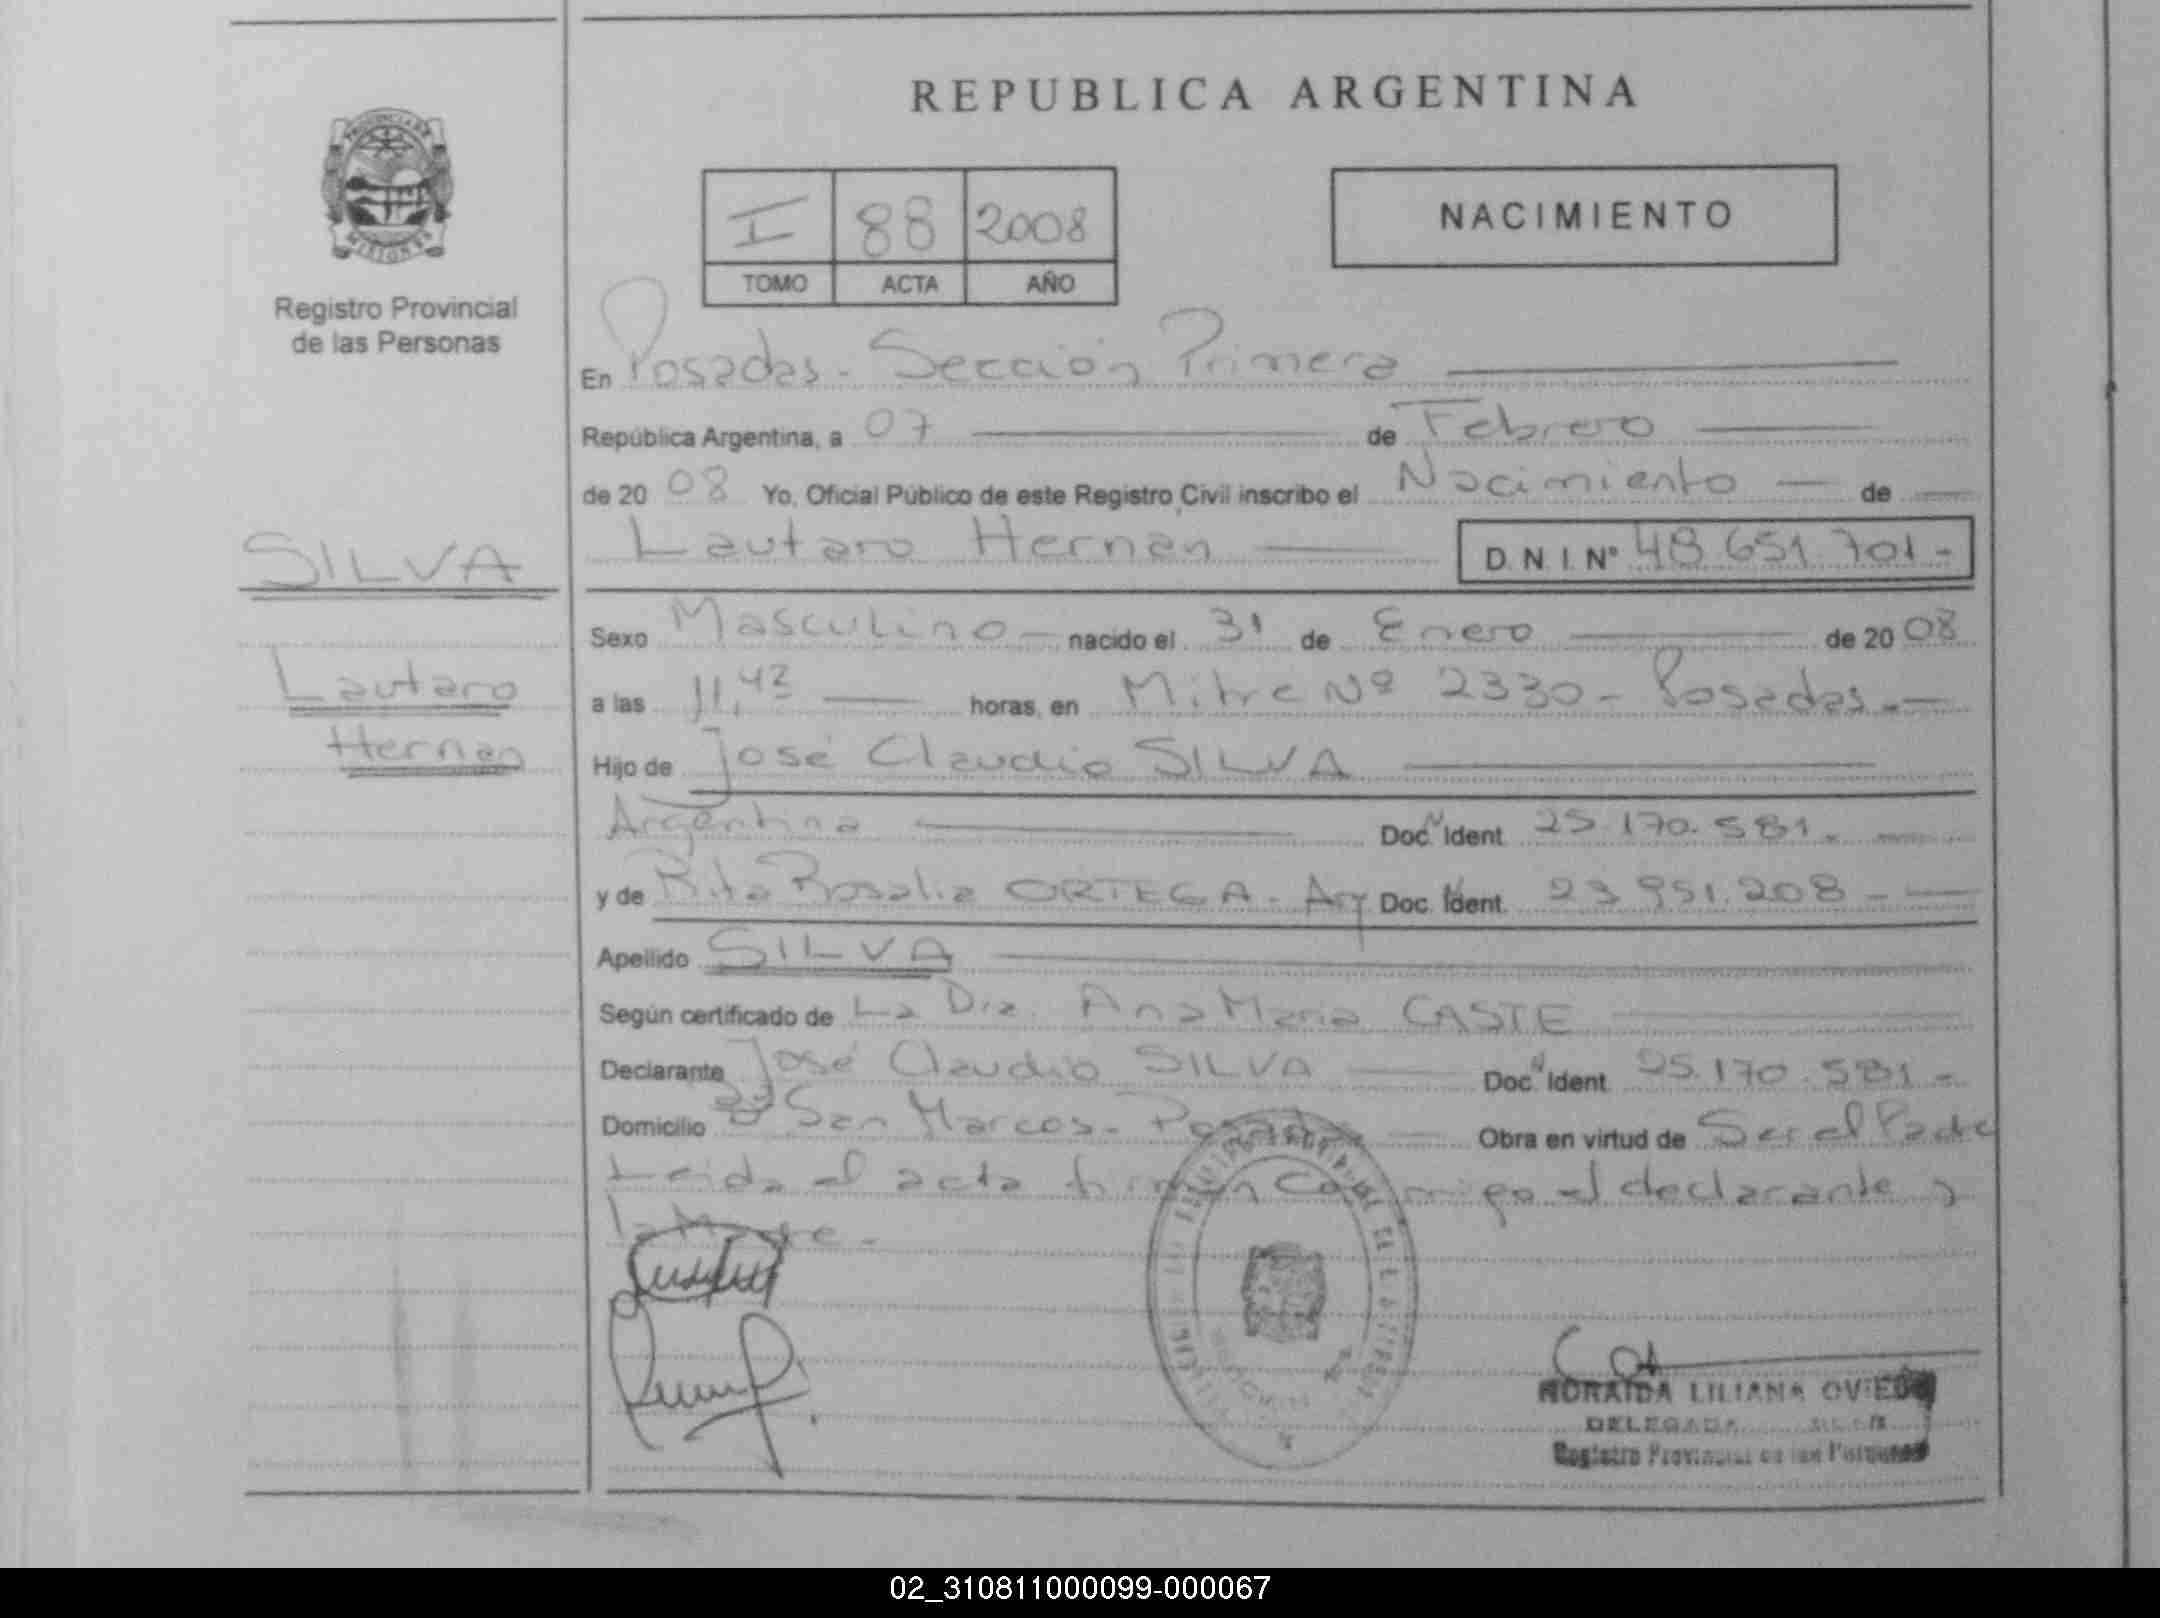 REPUBLICA ARGENTINA
PROVINCIA DE
MISIONES
Registro Provincial
de las Personas
I 88 2008
TOMO ACTA AÑO
NACIMIENTO
En Posadas - Sección Primera
República Argentina, a 07 de Febrero
de 20 08 Yo, Oficial Público de este Registro Civil inscribo el Nacimiento de
Lautaro Hernan D. N. I. N° 48.651.701.-
SILVA
Lautaro
Hernan
Sexo Masculino nacido el 31 de Enero de 20 08
a las 11,42 horas, en Mitre Nº 2330 - Posadas.-
Hijo de José Claudio SILVA
Argentina Doc. N Ident. 25.170.581.
y de Rita Rosalia ORTEGA - Arg Doc. Ident. 23.951.208 -
Apellido SILVA
Según certificado de La Dra. Ana Maria CASTE
Declarante José Claudio SILVA Doc. N Ident. 25.170.581 -
Domicilio San Marcos - Obra en virtud de Ser el Padre
Leida el acta firman conmigo el declarante y
la
NORAIDA LILIANA OVIEDO
DELEGADA
Registro Provincial de las Personas
02_310811000099-000067